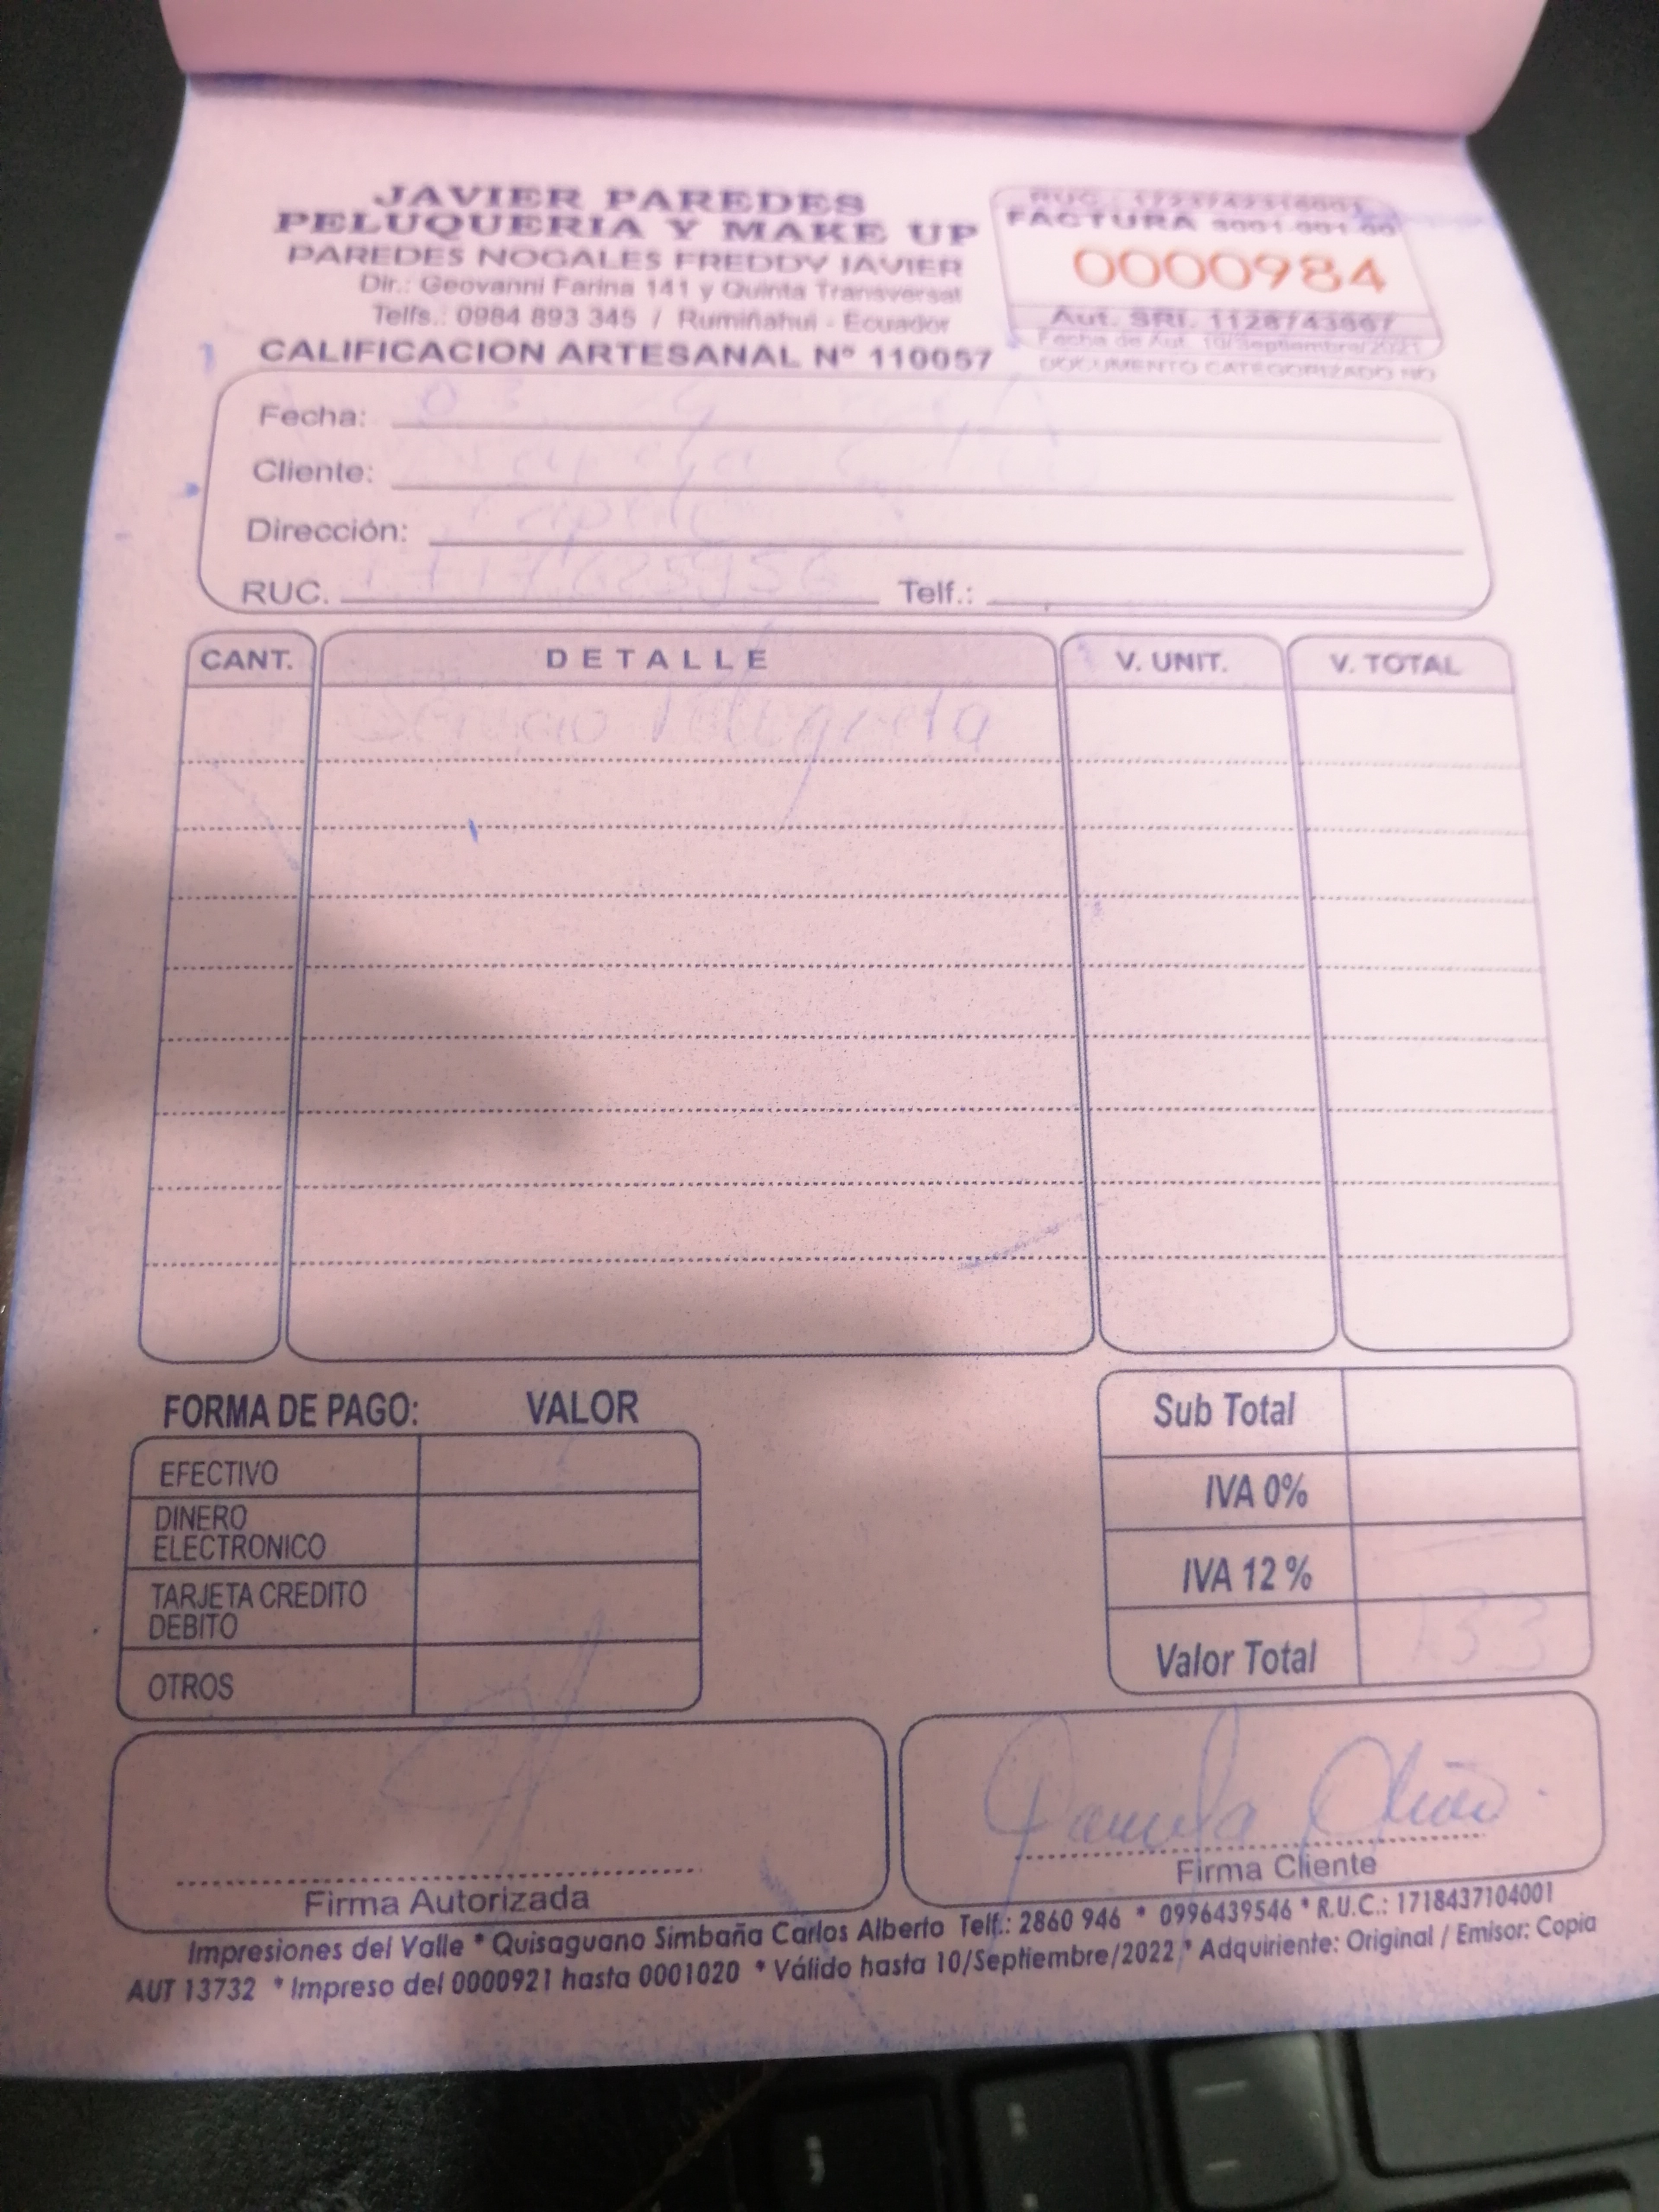 JAVIER PAREDES
PELUQUERIA Y MAKE UP
PAREDES NOGALES FREDDY JAVIER
Dir.: Geovanni Farina 141 y Quinta Transversal
Telfs.: 0984 893 345 / Rumiñahui - Ecuador
CALIFICACION ARTESANAL Nº 110057
RUC.:
FACTURA
0000984
Aut. SRI.
Fecha de Aut. 10/Septiembre/2021
DOCUMENTO CATEGORIZADO NO
Fecha:
Cliente:
Dirección:
RUC.
Telf.:
CANT. DETALLE V. UNIT. V. TOTAL
Servicio
FORMA DE PAGO: VALOR
EFECTIVO
DINERO
ELECTRONICO
TARJETA CREDITO
DEBITO
OTROS
Sub Total
IVA 0%
IVA 12 %
Valor Total
Firma Autorizada
Firma Cliente
Impresiones del Valle * Quisaguano Simbaña Carlos Alberto Telf.: 2860 946 * 0996439546 * R.U.C.: 1718437104001
AUT 13732 * Impreso del 0000921 hasta 0001020 * Válido hasta 10/Septiembre/2022 * Adquiriente: Original / Emisor: Copia